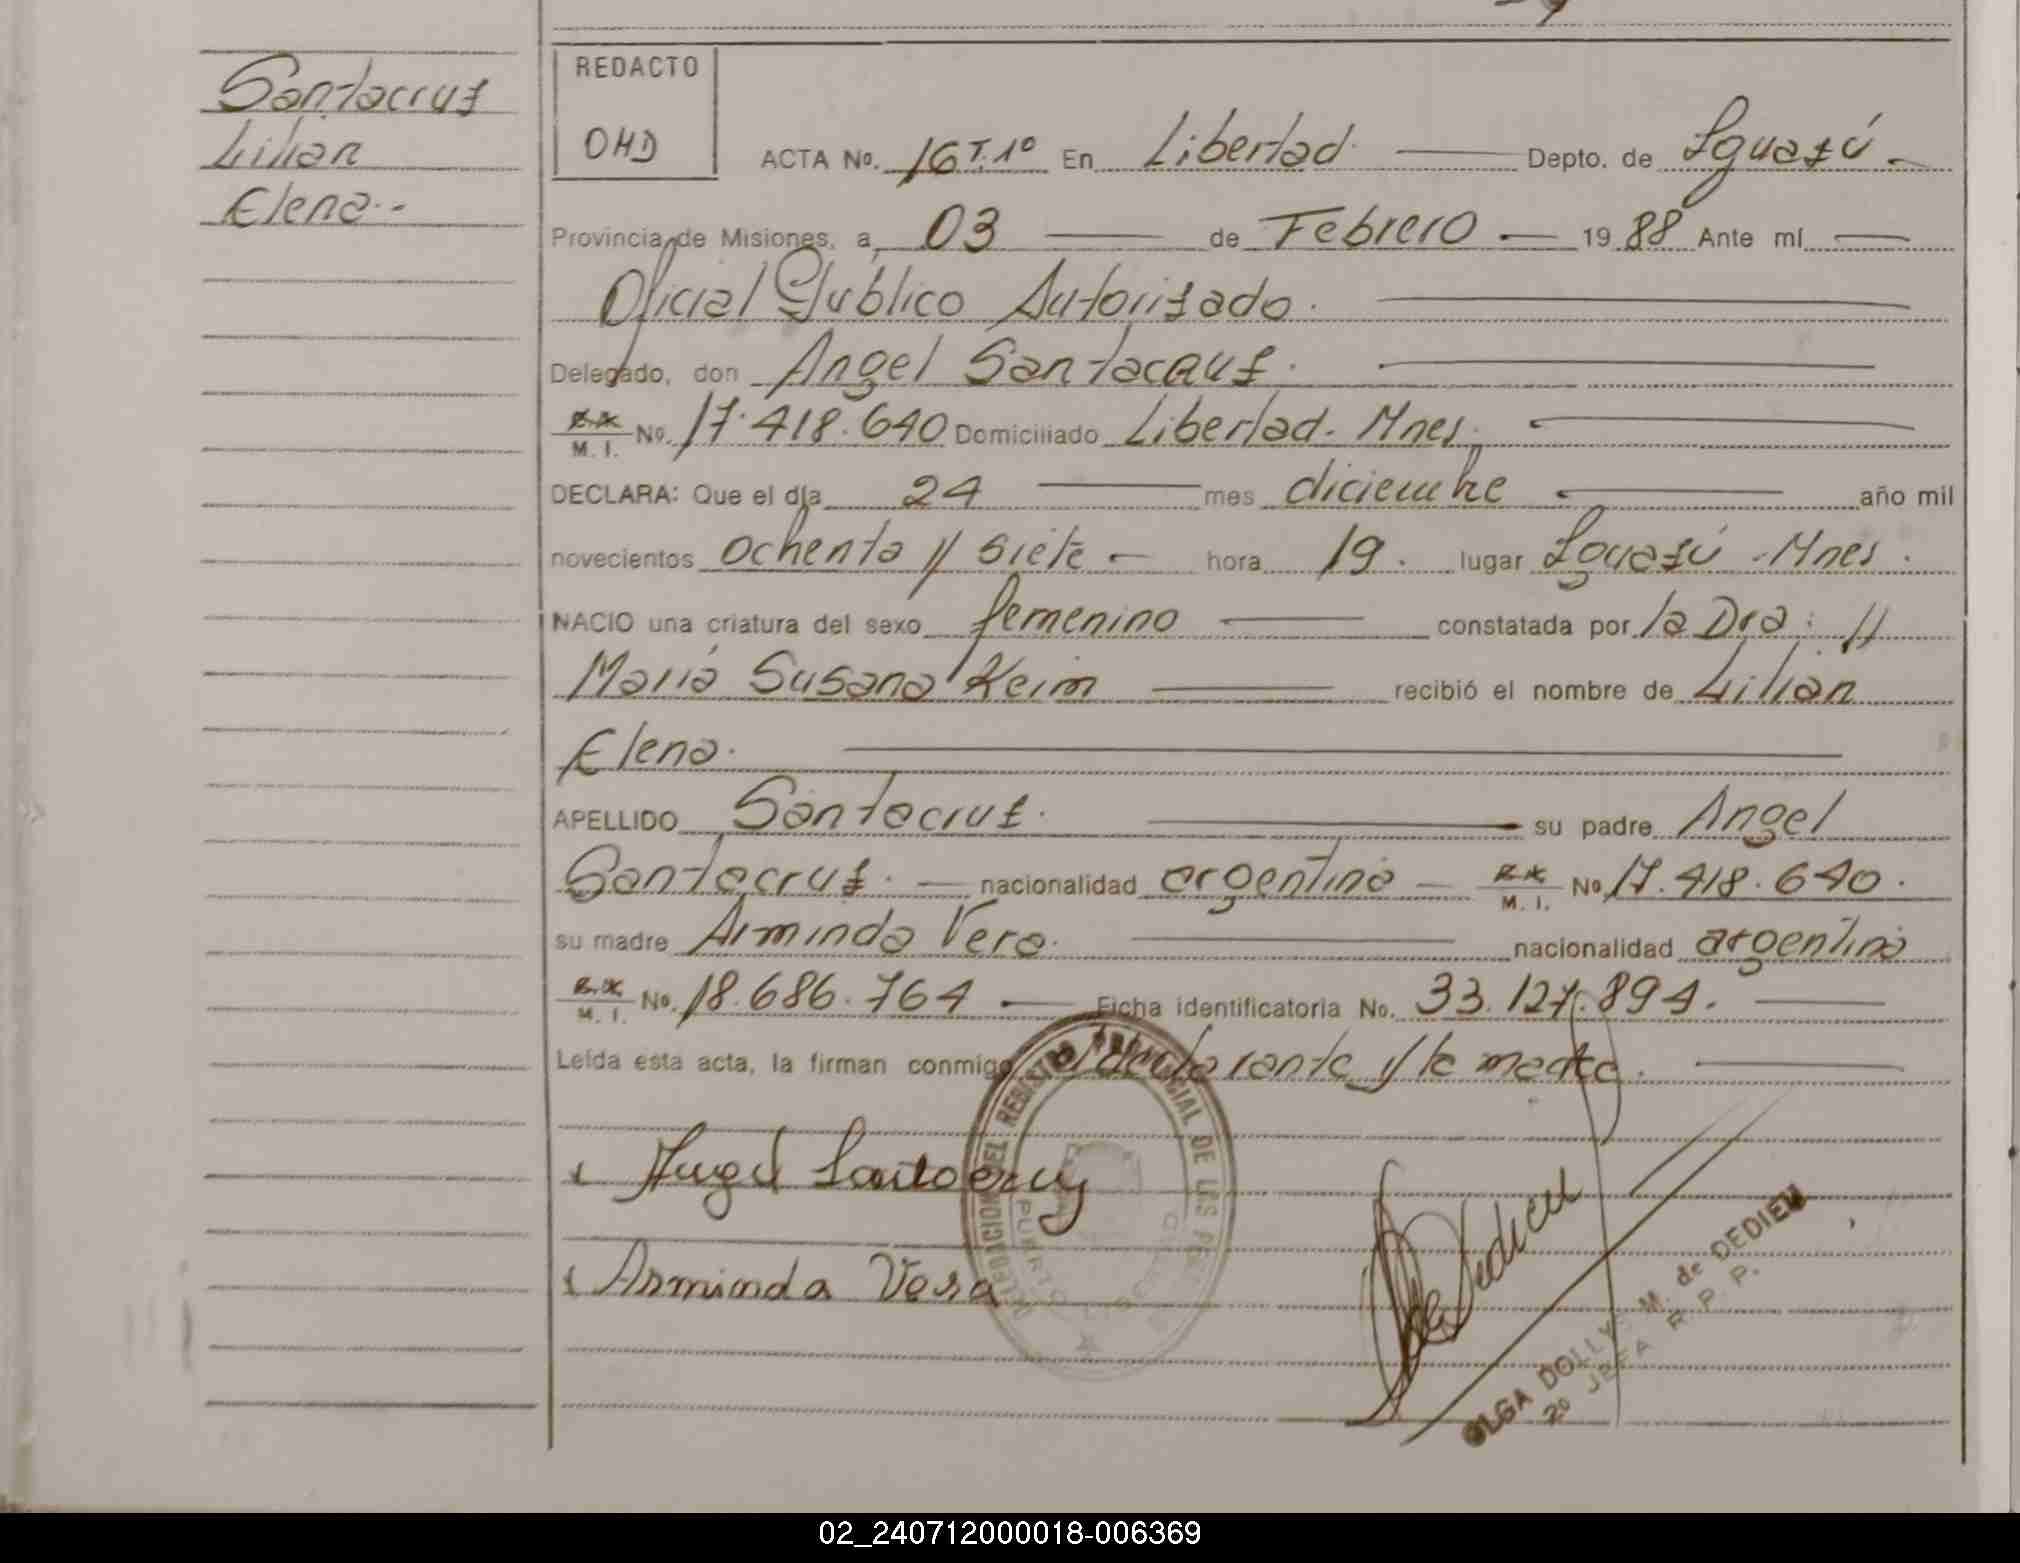 Santacruz
Lilian
Elena.-
REDACTO
OHD
ACTA No. 16 T.1º En Libertad. Depto. de Iguazú
Provincia de Misiones, a 03 de Febrero 1988 Ante mí
Oficial Público Autorizado.
Delegado, don Angel Santacruz.
M. I. No. 17.418.640 Domiciliado Libertad. Mnes.
DECLARA: Que el día 24 mes diciembre año mil
novecientos ochenta y siete hora 19. lugar Iguazú - Mnes.
NACIO una criatura del sexo femenino constatada por la Dra: //
María Susana Keim recibió el nombre de Lilian
Elena.
APELLIDO Santacruz. su padre Angel
Santacruz. nacionalidad argentina M. I. No 17.418.640.
su madre Arminda Vera. nacionalidad argentina
M. I. No. 18.686.764 Ficha identificatoria No. 33.127.894.
Leída esta acta, la firman conmigo el declarante y la madre.
Angel Santacruz
Arminda Vera
DELEGACION DEL REGISTRO PROVINCIAL DE LAS PERSONAS
PUERTO LIBERTAD
OLGA DOLLYS M. de DEDIEU
2º JEFA R. P. P.
02_240712000018-006369